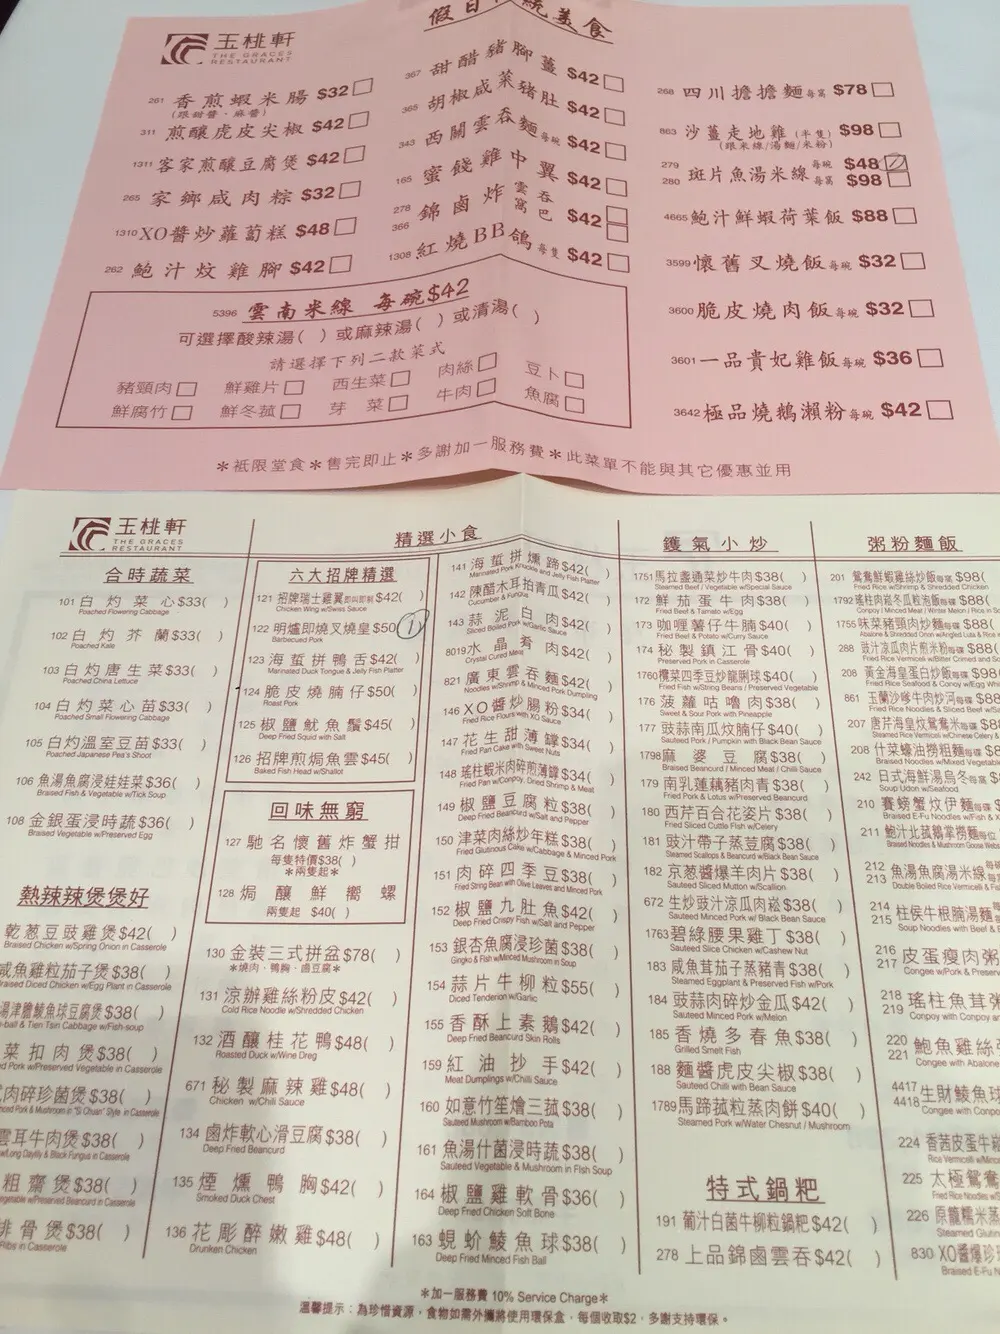 玉桃軒
THE GRACES
RESTAURANT
假日 統美食
261 香煎蝦米腸 $32
(跟甜醬、麻醬)
311 煎釀虎皮尖椒 $42
1311 客家煎釀豆腐煲 $42
265 家鄉咸肉粽 $32
1310 XO醬炒蘿蔔糕 $48
262 鮑汁炆雞腳 $42
367 甜醋豬腳薑 $42
365 胡椒咸菜豬肚 $42
343 西關雲吞麵 每碗 $42
165 蜜餞雞中翼 $42
278 錦鹵炸 雲吞
366 窩巴 $42
1308 紅燒BB鴿 每隻 $42
268 四川擔擔麵 每窩 $78
863 沙薑走地雞 (半隻) $98
(跟米線/湯麵/米粉)
279 每碗 $48
280 斑片魚湯米線 每窩 $98
4665 鮑汁鮮蝦荷葉飯 $88
3599 懷舊叉燒飯 每碗 $32
3600 脆皮燒肉飯 每碗 $32
3601 一品貴妃雞飯 每碗 $36
3642 極品燒鵝瀨粉 每碗 $42
5396 雲南米線 每碗$42
可選擇酸辣湯( )或麻辣湯( )或清湯( )
請選擇下列二款菜式
豬頸肉 鮮雞片 西生菜 肉絲 豆卜
鮮腐竹 鮮冬菇 芽菜 牛肉 魚腐
*祗限堂食*售完即止*多謝加一服務費*此菜單不能與其它優惠並用
玉桃軒
THE GRACES
RESTAURANT
合時蔬菜
101 白灼菜心 $33( )
Poached Flowering Cabbage
102 白灼芥蘭 $33( )
Poached Kale
103 白灼唐生菜 $33( )
Poached China Lettuce
104 白灼菜心苗 $33( )
Poached Small Flowering Cabbage
105 白灼溫室豆苗 $33( )
Poached Japanese Pea's Shoot
106 魚湯魚腐浸娃娃菜 $36( )
Braised Fish & Vegetable w/Tick Soup
108 金銀蛋浸時蔬 $36( )
Braised Vegetable w/Preserved Egg
熱辣辣煲煲好
乾葱豆豉雞煲 $42( )
Braised Chicken w/Spring Onion in Casserole
咸魚雞粒茄子煲 $38( )
Braised Diced Chicken w/Egg Plant in Casserole
湯津膽鯪魚球豆腐煲 $38( )
-ball & Tien Tsin Cabbage w/Fish-soup
菜扣肉煲 $38( )
ed Pork w/Preserved Vegetable in Casserole
肉碎珍菌煲 $38( )
ced Pork & Mushroom in "Si Chuan" Style in Casserole
雲耳牛肉煲 $38( )
w/Long Daylily & Black Fungus in Casserole
粗齋煲 $38( )
egetable w/Preserved Beancurd in Casserole
排骨煲 $38( )
Ribs in Casserole
精選小食
六大招牌精選
121 招牌瑞士雞翼 即叫即制 $42( )
Chicken Wing w/Swiss Sauce
122 明爐即燒叉燒皇 $50(1)
Barbecued Pork
123 海蜇拼鴨舌 $42( )
Marinated Duck Tongue & Jelly Fish Platter
124 脆皮燒腩仔 $50( )
Roast Pork
125 椒鹽魷魚鬚 $45( )
Deep Fried Squid with Salt
126 招牌煎焗魚雲 $45( )
Baked Fish Head w/Shallot
回味無窮
127 馳名懷舊炸蟹拑
每隻特價$38( )
*兩隻起*
128 焗釀鮮嚮螺
兩隻起 $40( )
130 金裝三式拼盆 $78( )
*燒肉、鴨胸、鹵豆腐*
131 涼辦雞絲粉皮 $42( )
Cold Rice Noodle w/Shredded Chicken
132 酒釀桂花鴨 $48( )
Roasted Duck w/Wine Dreg
671 秘製麻辣雞 $48( )
Chicken w/Chili Sauce
134 鹵炸軟心滑豆腐 $38( )
Deep Fried Beancurd
135 煙燻鴨胸 $42( )
Smoked Duck Chest
136 花彫醉嫩雞 $48( )
Drunken Chicken
141 海蜇拼燻蹄 $42( )
Marinated Pork Knuckle and Jelly Fish Platter
142 陳醋木耳拍青瓜 $42( )
Cucumber & Fungus
143 蒜泥白肉 $42( )
Sliced Boiled Pork w/Garlic Sauce
8019 水晶肴肉 $42( )
Crystal Cured Meat
821 廣東雲吞麵 $42( )
Noodles w/Shrimp & Minced Pork Dumpling
146 XO醬炒腸粉 $34( )
Fried Rice Flours with XO Sauce
147 花生甜薄罉 $34( )
Fried Pan Cake with Sweet Nuts
148 瑤柱蝦米肉碎煎薄罉 $34( )
Fried Pan w/Conpoy, Dried Shrimp & Meat
149 椒鹽豆腐粒 $38( )
Deep Fried Beancurd w/Salt and Pepper
150 津菜肉絲炒年糕 $38( )
Fried Glutinous Cake w/Cabbage & Minced Pork
151 肉碎四季豆 $38( )
Fried String Bean with Olive Leaves and Minced Pork
152 椒鹽九肚魚 $42( )
Deep Fried Crispy Fish w/Salt and Pepper
153 銀杏魚腐浸珍菌 $38( )
Gingko & Fish w/Minced Mushroom in Soup
154 蒜片牛柳粒 $55( )
Diced Tenderion w/Garlic
155 香酥上素鵝 $42( )
Deep Fried Beancurd Skin Rolls
159 紅油抄手 $42( )
Meat Dumplings w/Chilli Sauce
160 如意竹笙燴三菰 $38( )
Sauteed Mushroom w/Bamboo Pota
161 魚湯什菌浸時蔬 $38( )
Sauteed Vegetable & Mushroom in Fish Soup
164 椒鹽雞軟骨 $36( )
Deep Fried Chicken Soft Bone
163 蜆蚧鯪魚球 $38( )
Deep Fried Minced Fish Ball
鑊氣小炒
1751 馬拉盞通菜炒牛肉 $38( )
Sauteed Beef / Vegetable w/Special Sauce
172 鮮茄蛋牛肉 $38( )
Fried Beef & Tamato w/Egg
173 咖喱薯仔牛腩 $40( )
Fried Beef & Potato w/Curry Sauce
174 秘製鎮江骨 $40( )
Preserved Pork in Casserole
1760 欖菜四季豆炒龍脷球 $40( )
Fried Fish w/String Beans / Preserved Vegetable
176 菠蘿咕嚕肉 $38( )
Sweet & Sour Pork with Pineapple
177 豉蒜南瓜炆腩仔 $40( )
Sauteed Pork / Pumpkin with Black Bean Sauce
1798 麻婆豆腐 $38( )
Braised Beancurd / Minced Meat / Chilli Sauce
179 南乳蓮藕豬肉青 $38( )
Fried Pork & Lotus w/Preserved Beancurd
180 西芹百合花姿片 $38( )
Fried Sliced Cuttle Fish w/Celery
181 豉汁帶子蒸豆腐 $38( )
Steamed Scallops & Beancurd w/Black Bean Sauce
182 京葱醬爆羊肉片 $38( )
Sauteed Sliced Mutton w/Scallion
672 生炒豉汁涼瓜肉崧 $38( )
Sauteed Minced Pork w/ Black Bean Sauce
1763 碧綠腰果雞丁 $38( )
Sauteed Slice Chicken w/Cashew Nut
183 咸魚茸茄子蒸豬青 $38( )
Steamed Eggplant & Preserved Fish w/Pork
184 豉蒜肉碎炒金瓜 $42( )
Sauteed Minced Pork w/Melon
185 香燒多春魚 $38( )
Grilled Smelt Fish
188 麵醬虎皮尖椒 $38( )
Sauteed Chilli with Bean Sauce
1789 馬蹄菰粒蒸肉餅 $40( )
Steamed Pork w/Water Chesnut / Mushroom
特式鍋粑
191 葡汁白菌牛柳粒鍋粑 $42( )
278 上品錦鹵雲吞 $42( )
粥粉麵飯
201 鴛鴦鮮蝦雞絲炒飯 每窩 $98(
Fried Rice w/Shrimp & Shredded Chicken
1792 瑤柱肉崧冬瓜粒泡飯 每窩 $88(
Conpoy / Minced Meat / Winter Melon / Rice in S
1755 味菜豬頸肉炒麵 每碟 $88(
288 豉汁涼瓜肉片煎米粉 每碟 $88(
Fried Rice Vermicelli w/Bitter Crimed and So
208 黃金海皇蛋白炒飯 每碟 $88(
Fried Rice Seafood & Conpoy w/Egg Whi
861 玉蘭沙嗲牛肉炒河 每碟 $88
Fried Rice Noodles & Sliced Beef w/Sa
207 唐芹海皇炆鴛鴦米 每碟 $8
Steamed Rice Vermicelli w/Chinese Celery &
208 什菜蠔油撈粗麵 每碟 $8
Braised Noodles w/Mixed Vegetable
242 日式海鮮湯烏冬 每窩 $
Soup Udon w/Seafood
210 賽螃蟹炆伊麵 每碟
Braised E-Fu Noodles w/Fish & X
211 鮑汁北菰鵝掌撈麵 每位
Braised Noodles & Mushroom Goose Webs
212
213 魚湯魚腐湯米線 每
Double Boiled Rice Vermicelli & Fish
214
215 柱侯牛根腩湯麵
Soup Noodles with Beef &
216
217 皮蛋瘦肉粥
Congee w/Pork & Preser
218
219 瑤柱魚茸粥
Conpoy w/Conpoy an
220
221 鮑魚雞絲
Congee with Abalone
4417
4418 生財鯪魚球
Congee with Conpo
224 香茜皮蛋牛崧
Rice Vermicelli w/Mince
225 太極鴛鴦
Fried Rice Noodles w/
226 原籠糯米蒸
Steamed Glutin
830 XO醬爆珍
Braised E-Fu N
*加一服務費 10% Service Charge*
溫馨提示：為珍惜資源，食物如需外攜將使用環保盒，每個收取$2，多謝支持環保。